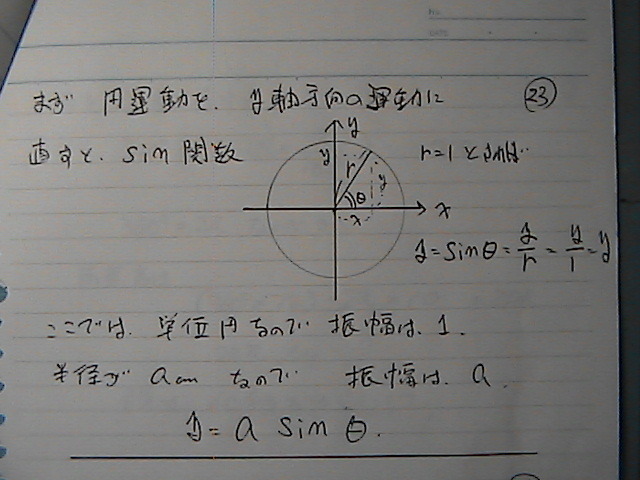 No.
DATE
まず 円運動を、y軸方向の運動に
㉓
直すと、sin関数
y
y
r
y
θ
x
x
r=1 とすれば
y=sinθ=y/r=y/1=y
ここでは、単位円なので 振幅は、1.
半径が acm なので 振幅は、a.
y=a sin θ.